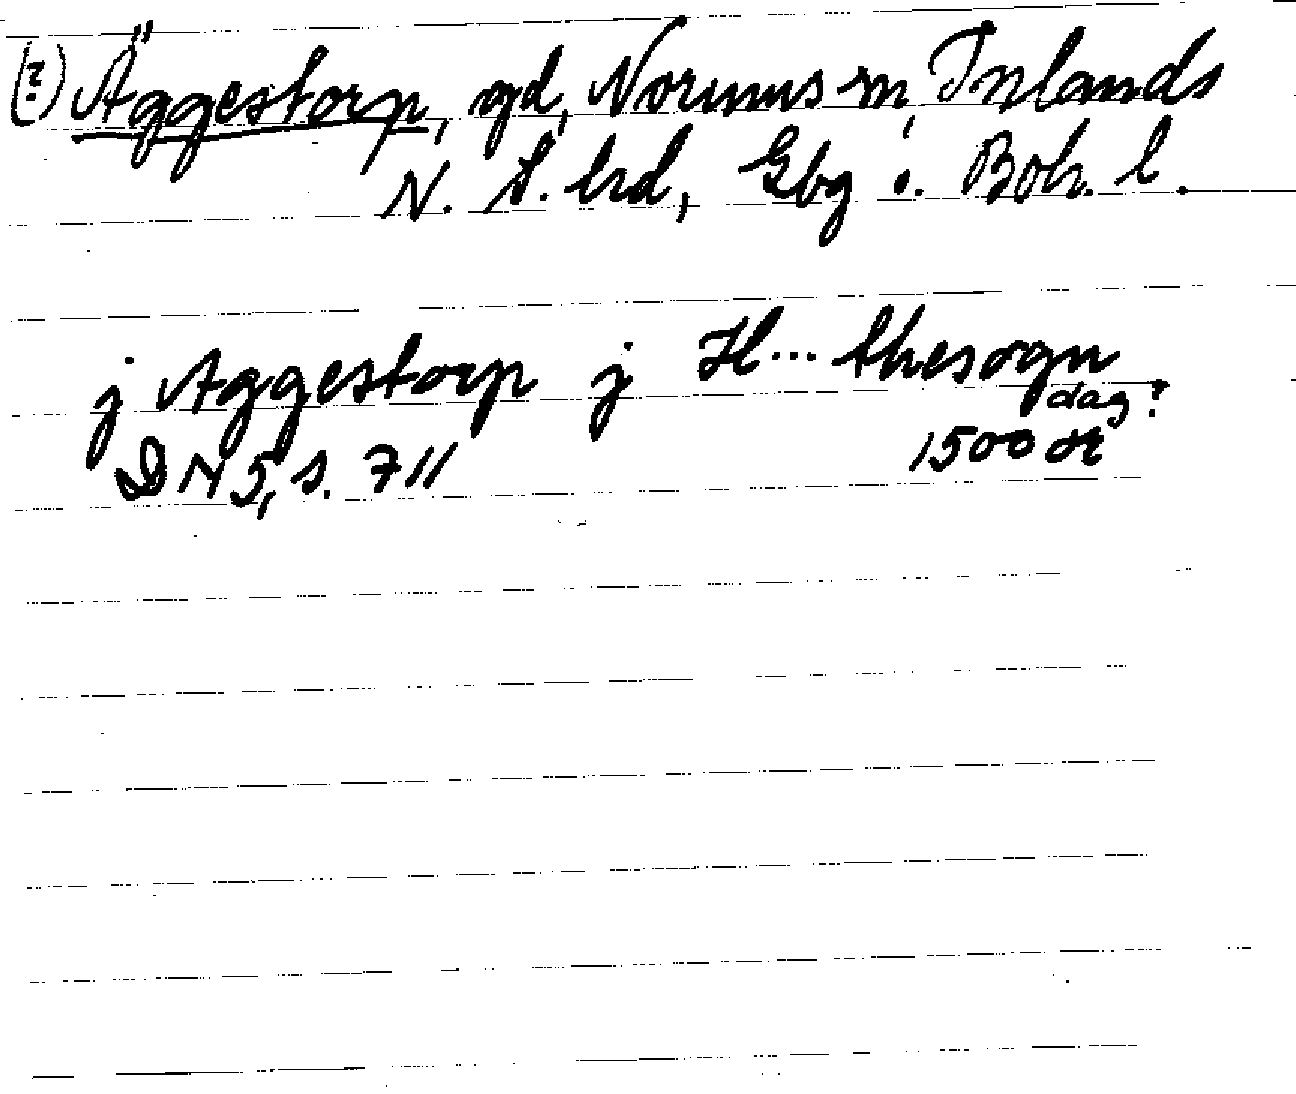 (?) Äggestorp, gd, Norums sn, Inlands
N. S. hrd, Gbg o. Boh. l.
j Aggestorp j H... thesogn
dag?
DN 5, s. 711 1500 dr